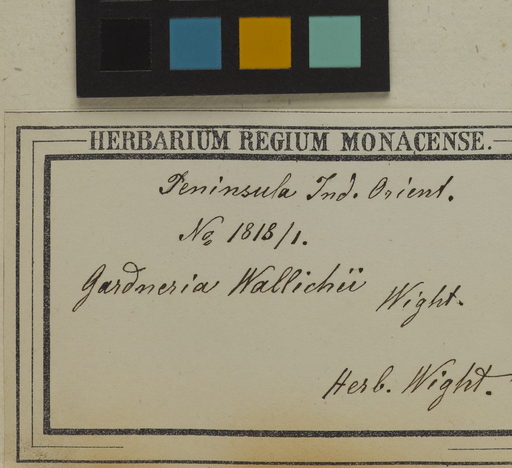 HERBARIUM REGIUM MONACENSE.
Peninsula Ind. Orient.
No 1818/1.
Gardneria Wallichii Wight.
Herb. Wight.